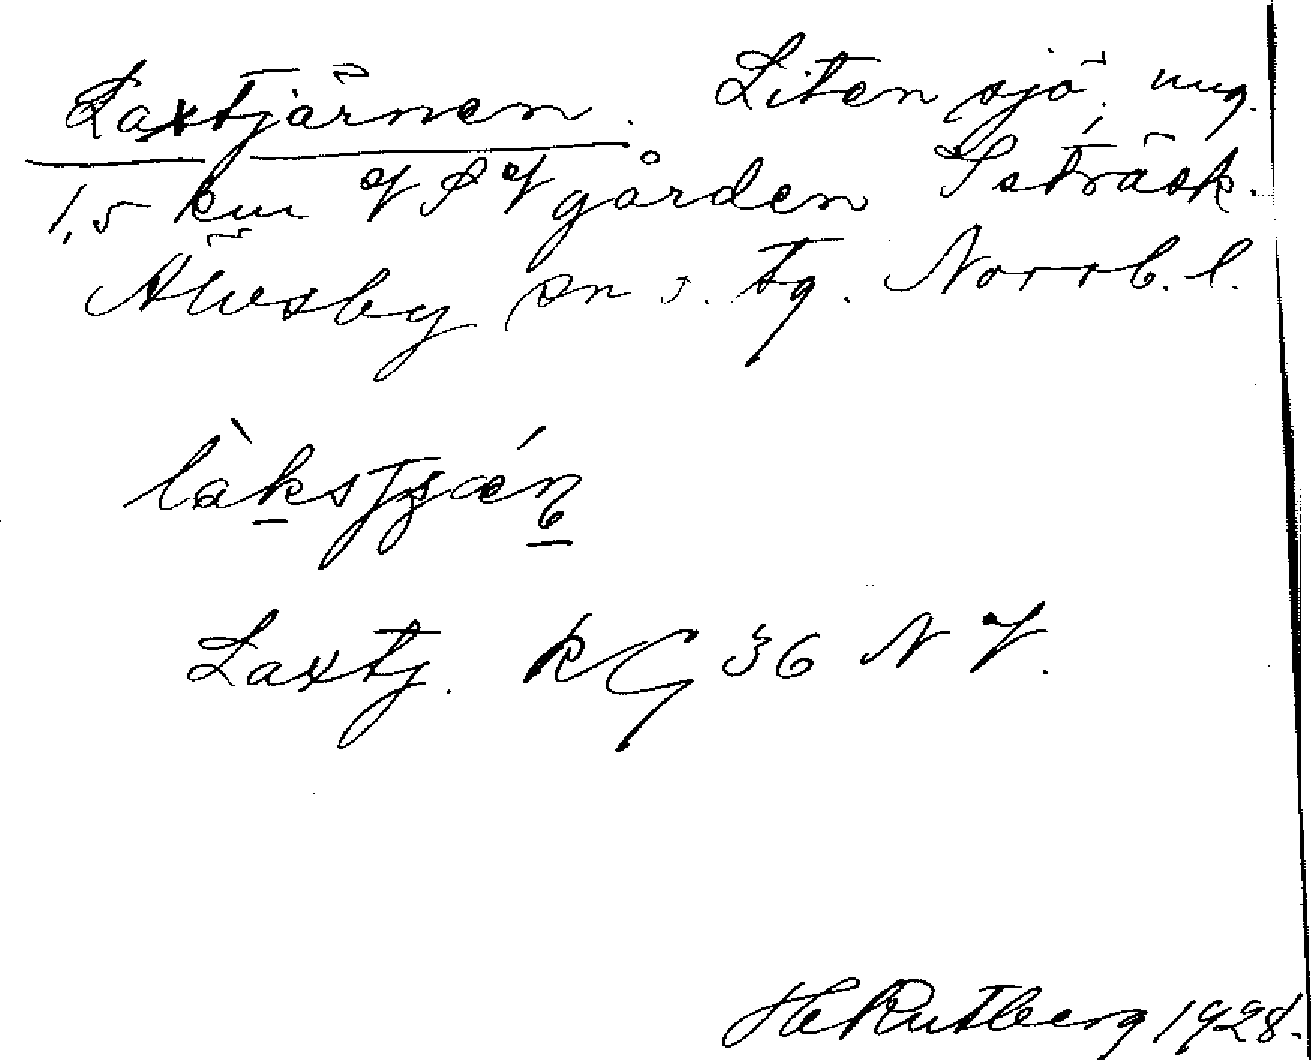 Laxtjärnen. Liten sjö, ung.
1,5 km VSV gården Isträsk.
Älvsby sn o. tg. Norrb. l.
làkstjæń
Laxtj. kG 36 NV.
H Rutberg 1928.